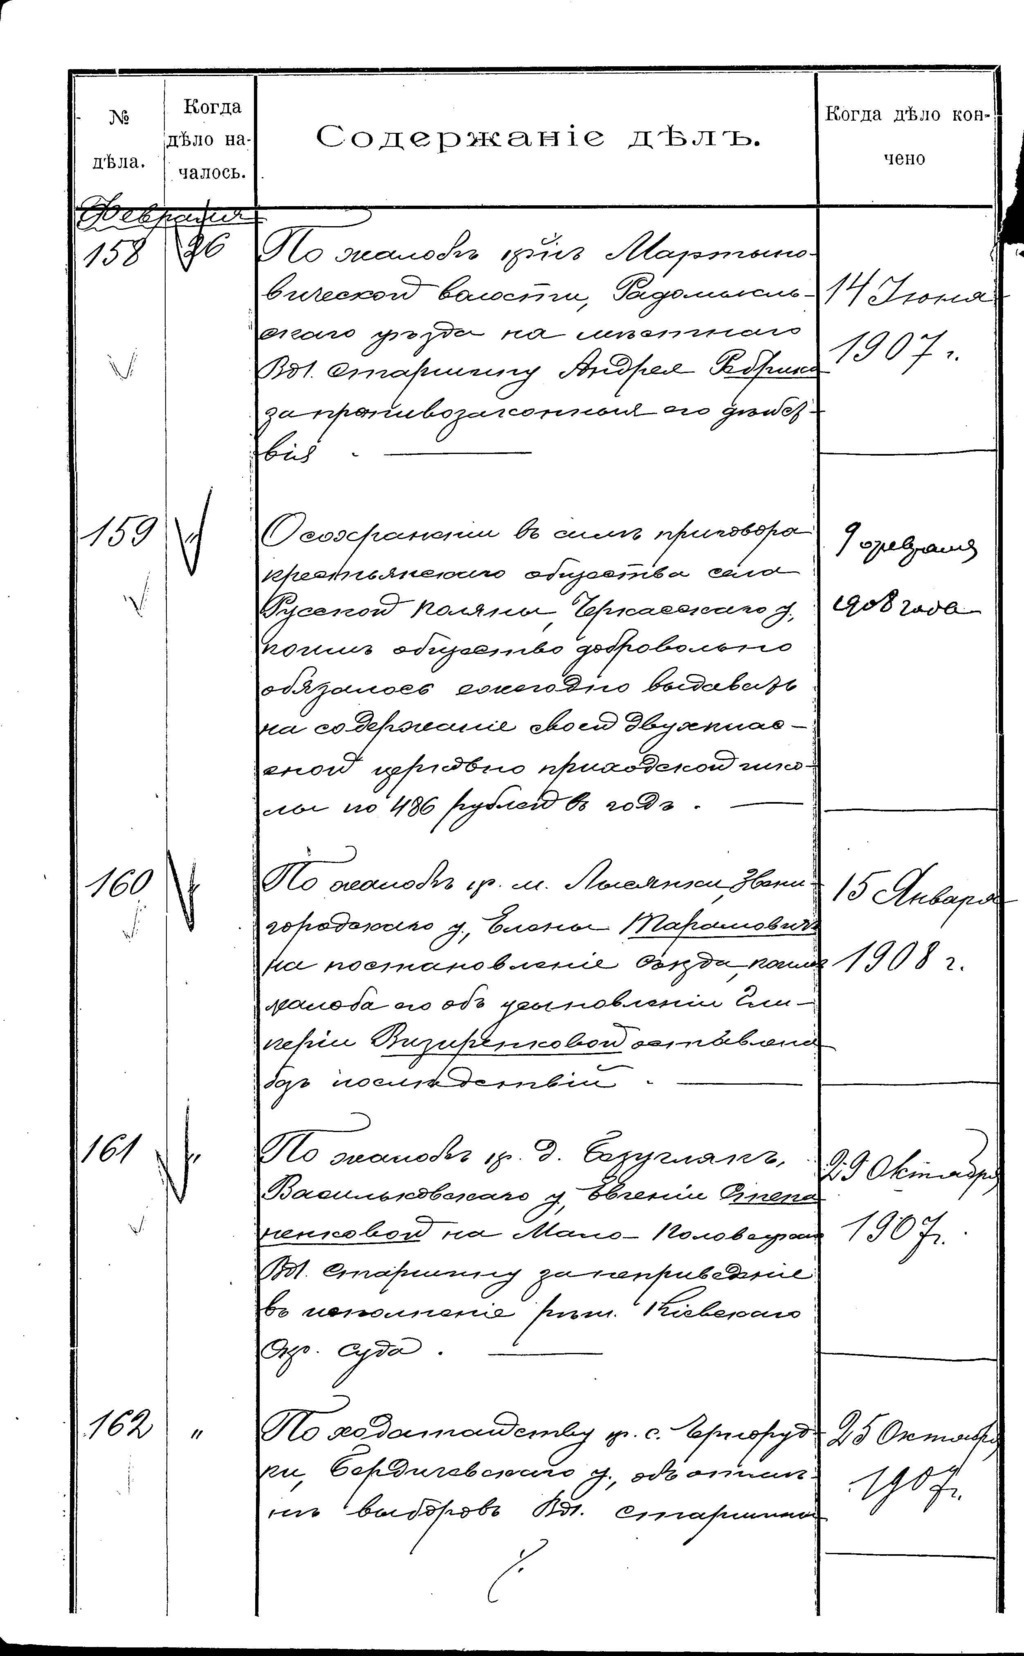 № дѣла.
Когда дѣло началось.
Содержаніе дѣлъ.
Когда дѣло кончено
Февраля
158 26 По жалобѣ кр. Мартыно-
вической волости, Радомысль- 14 Іюня
скаго уѣзда на мѣстнаго 1907 г.
Вол. Старшину Андрея
за противозаконныя его дѣйст-
вія
159 " О сохраненіи въ силѣ приговора 9 февраля
крестьянскаго общества села
Русской Поляны, Черкасскаго у., 1908 года
коимъ общество добровольно
обязалось ежегодно выдавать
на содержаніе своей двухклас-
сной церковно приходской шко-
лы по 486 рублей въ годъ.
160 " По жалобѣ кр. м. Лысянки, Звени- 15 Января
городскаго у., Елены
на постановленіе Съѣзда, коимъ 1908 г.
жалоба его объ усыновленіи Гли-
керіи Визиренковой оставлена
безъ послѣдствій.
161 " По жалобѣ кр. д. Безуглякъ,
Васильковскаго у., Евгеніи Степа- 29 Октября
ненковой на Мало-Половецкаго 1907 г.
Вол. Старшину за неприведеніе
въ исполненіе рѣш. Кіевскаго
Окр. Суда.
162 " По ходатайству кр. с. Черноруд- 25 Октября
ки, Бердичевскаго у., объ отмѣ-
нѣ выборовъ Вол. Старшины 1907 г.